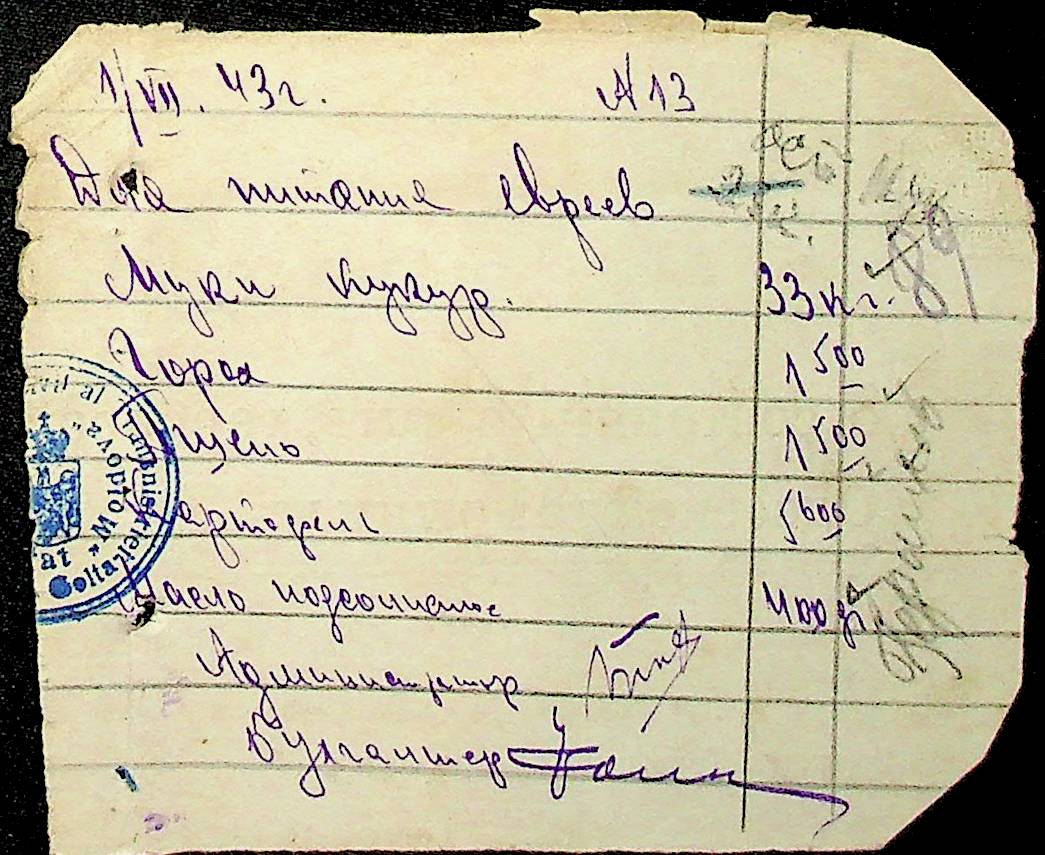 1/VII. 43г. N 13
Для питания евреев
Муки кукур. 33 кг. 89
Гороха 1 500
Пщено 1 500
Картофель 5 600
Масло подсолнечное 400 гр
Администратор
Бухгалтер
al Administrației
Moptova
Golta